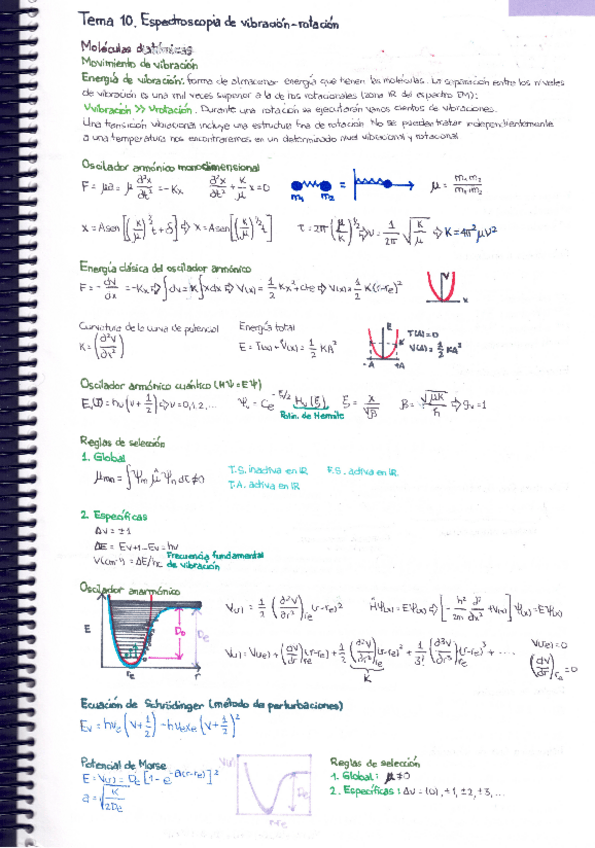 Tema 10. Espectroscopia de vibración-rotación
Moléculas diatómicas
Movimiento de vibración
Energía de vibración: forma de almacenar energía que tienen las moléculas. La separación entre los niveles
de vibración es una mil veces superior a la de los rotacionales (zona IR del espectro EM):
Vvibración >> Vrotación. Durante una rotación se ejecutarán varios cientos de vibraciones.
Una transición vibracional incluye una estructura fina de rotación. No se pueden tratar independientemente
a una temperatura nos encontraremos en un determinado nivel vibracional y rotacional
Oscilador armónico monodimensional
F = μa = μ d²x/dt² = -Kx   d²x/dt² + K/μ x = 0   m₁ m₂ =   μ = m₁m₂/m₁+m₂
x = Asen[(K/μ)^½ t + δ] ⇒ x = Asen[(K/μ)^½ t]   τ = 2π(μ/K)^½ ⇒ ν = 1/2π √K/μ ⇒ K = 4π²μν²
Energía clásica del oscilador armónico
F = - dV/dx = -Kx ⇒ ∫dv = K∫xdx ⇒ V(x) = 1/2 Kx² + cte ⇒ V(x) = 1/2 K(r-re)²   V x
Curvatura de la curva de potencial   Energía total
K = (d²V/dx²)   E = T(x) + V(x) = 1/2 KA²   E -A +A   T(A) = 0
V(A) = 1/2 KA²
Oscilador armónico cuántico (HΨ = EΨ)
Ev(J) = hν(v + 1/2) ⇒ v = 0,1,2,...   Ψv = Ce^-ξ/2 Hv(ξ)   ξ = x/√β   β = √μK/ħ ⇒ gv = 1
Polin. de Hermite
Reglas de selección
1. Global
μmn = ∫Ψm μ̂ Ψn dτ ≠ 0   T.S. inactiva en IR   F.S. activa en IR
T.A. activa en IR
2. Específicas
Δv = ±1
ΔE = Ev+1 - Ev = hν
V(cm⁻¹) = ΔE/hc   Frecuencia fundamental
de vibración
Oscilador anarmónico
E Do De re r   V(r) = 1/2 (d²V/dr²)re (r-re)²   ĤΨ(x) = EΨ(x) ⇒ [- ħ²/2m d²/dx² + V(x)] Ψ(x) = EΨ(x)
V(r) = V(re) + (dV/dr)re (r-re) + 1/2 (d²V/dr²)re (r-re)² + 1/3! (d³V/dr³)re (r-re)³ + ....   V(re) = 0
K   (dV/dr)re = 0
Ecuación de Schrödinger (método de perturbaciones)
Ev = hνe(v + 1/2) - hνexe(v + 1/2)²
Potencial de Morse   V(r)   Reglas de selección
E = V(r) = De[1 - e^-a(r-re)]²   De   1. Global: μ ≠ 0
a = √K/2De   r=re   2. Específicas: Δv = (0), ±1, ±2, ±3, ...